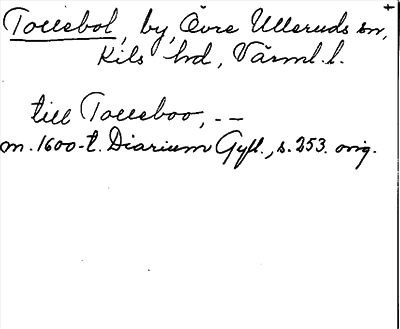 Tollesbol, by, Övre Ulleruds sn,
Kils hrd, Värml. l.
till Tollesboo, --
m. 1600-t. Diarium Gyll., s. 253. orig.